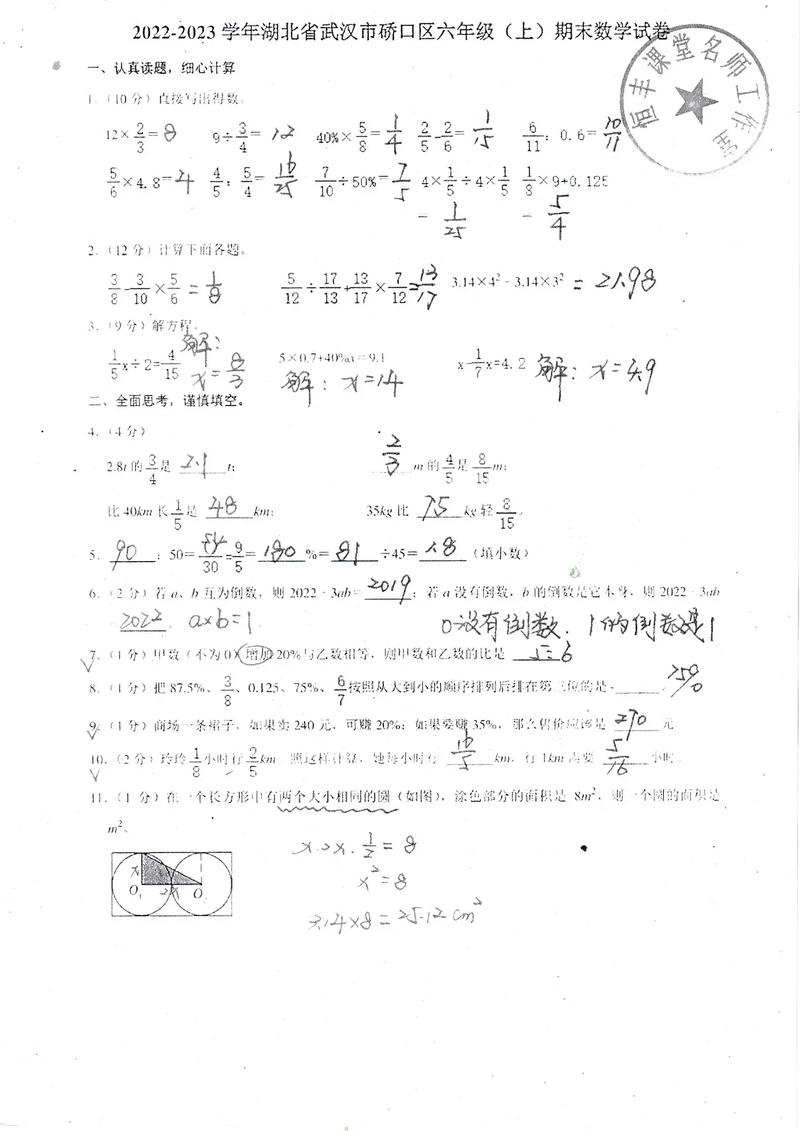 2022-2023 学年湖北省武汉市硚口区六年级（上）期末数学试卷
恒丰课堂名师工作室
一、认真读题，细心计算
1.（10 分）直接写出得数。
12×2/3=8 9÷3/4=12 40%×5/8=1/4 2/5-2/6=1/15 6/11：0.6=10/11
5/6×4.8=4 4/5：5/4=16/25 7/10÷50%=7/5 4×1/5÷4×1/5=1/25 1/8×9+0.125=5/4
2.（12 分）计算下面各题。
3/8-3/10×5/6=1/8 5/12÷17/13+13/17×7/12=13/17 3.14×4²-3.14×3²=21.98
3.（9 分）解方程。
1/5x÷2=4/15 解：x=8/3 5×0.7+40%x=9.1 解：x=14 x-1/7x=4.2 解：x=4.9
二、全面思考，谨慎填空。
4.（4 分）
2.8t 的3/4是 2.1 t； 2/3 m 的4/5是8/15m；
比 40km 长1/5是 48 km； 35kg 比 75 kg 轻8/15。
5. 90 ：50=54/30=9/5= 180 %= 81 ÷45= 1.8 （填小数）
6.（2 分）若 a、b 互为倒数，则 2022-3ab= 2019 ；若 a 没有倒数，b 的倒数是它本身，则 2022-3ab
2022 . a×b=1 0没有倒数. 1的倒数是1
7.（1 分）甲数（不为 0）增加 20%与乙数相等，则甲数和乙数的比是 5：6
8.（1 分）把 87.5%、3/8、0.125、75%、6/7按照从大到小的顺序排列后排在第三位的是 75%
9.（1 分）商场一条裙子，如果卖 240 元，可赚 20%；如果要赚 35%，那么售价应该是 270 元
10.（2 分）玲玲1/8小时行2/5km，照这样计算，她每小时行 16/5 km，行 1km 需要 5/16 小时。
11.（1 分）在一个长方形中有两个大小相同的圆（如图），涂色部分的面积是 8m²，则一个圆的面积是
m²。
x·2x·1/2=8
x O 2x O
x²=8
3.14×8=25.12cm²